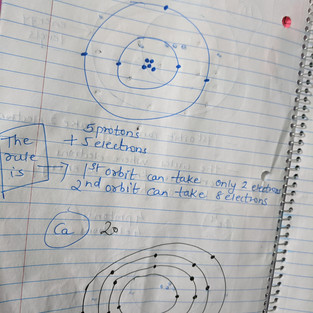 5 protons
+ 5 electrons
The rule is → 1st orbit can take only 2 electrons
2nd orbit can take 8 electrons
Ca 20